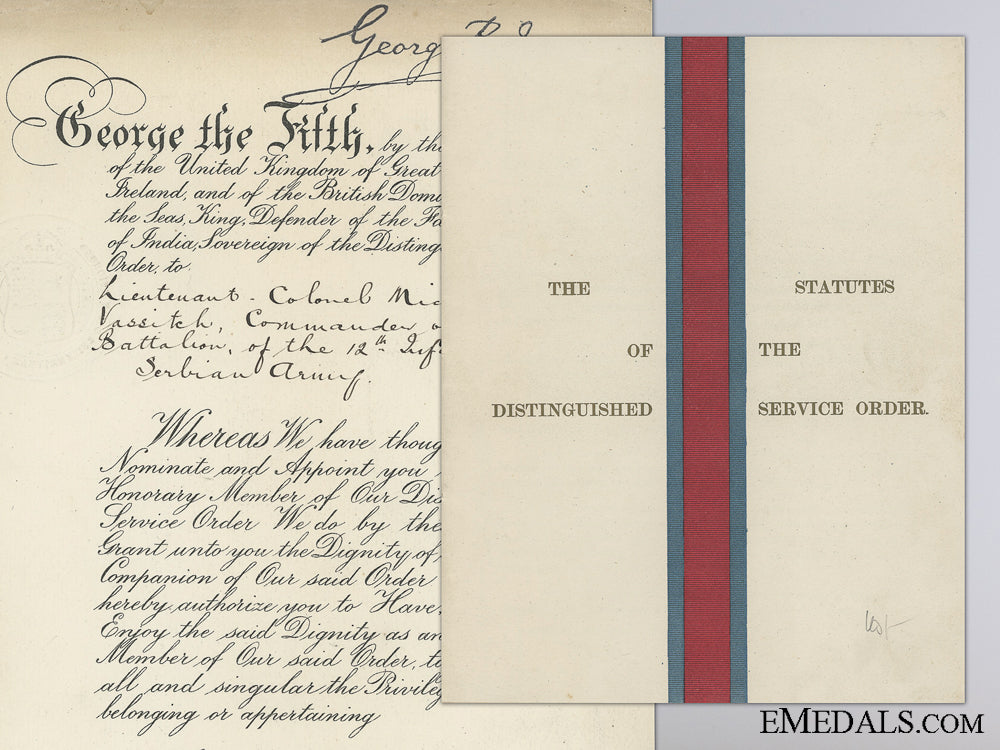 George R.I.
George the Fifth, by the
of the United Kingdom of Great
Ireland, and of the British Dom
the Seas, King, Defender of the Fa
of India, Sovereign of the Disting
Order, to
Lieutenant-Colonel Mic
Vassitch, Commander o
Battalion, of the 12th Inf
Serbian Army.
Whereas We have thoug
Nominate and Appoint you
Honorary Member of Our Dis
Service Order We do by the
Grant unto you the Dignity of
Companion of Our said Order
hereby authorize you to Have
Enjoy the said Dignity as an
Member of Our said Order, to
all and singular the Privileg
belonging or appertaining
THE STATUTES
OF THE
DISTINGUISHED SERVICE ORDER.
EMEDALS.COM